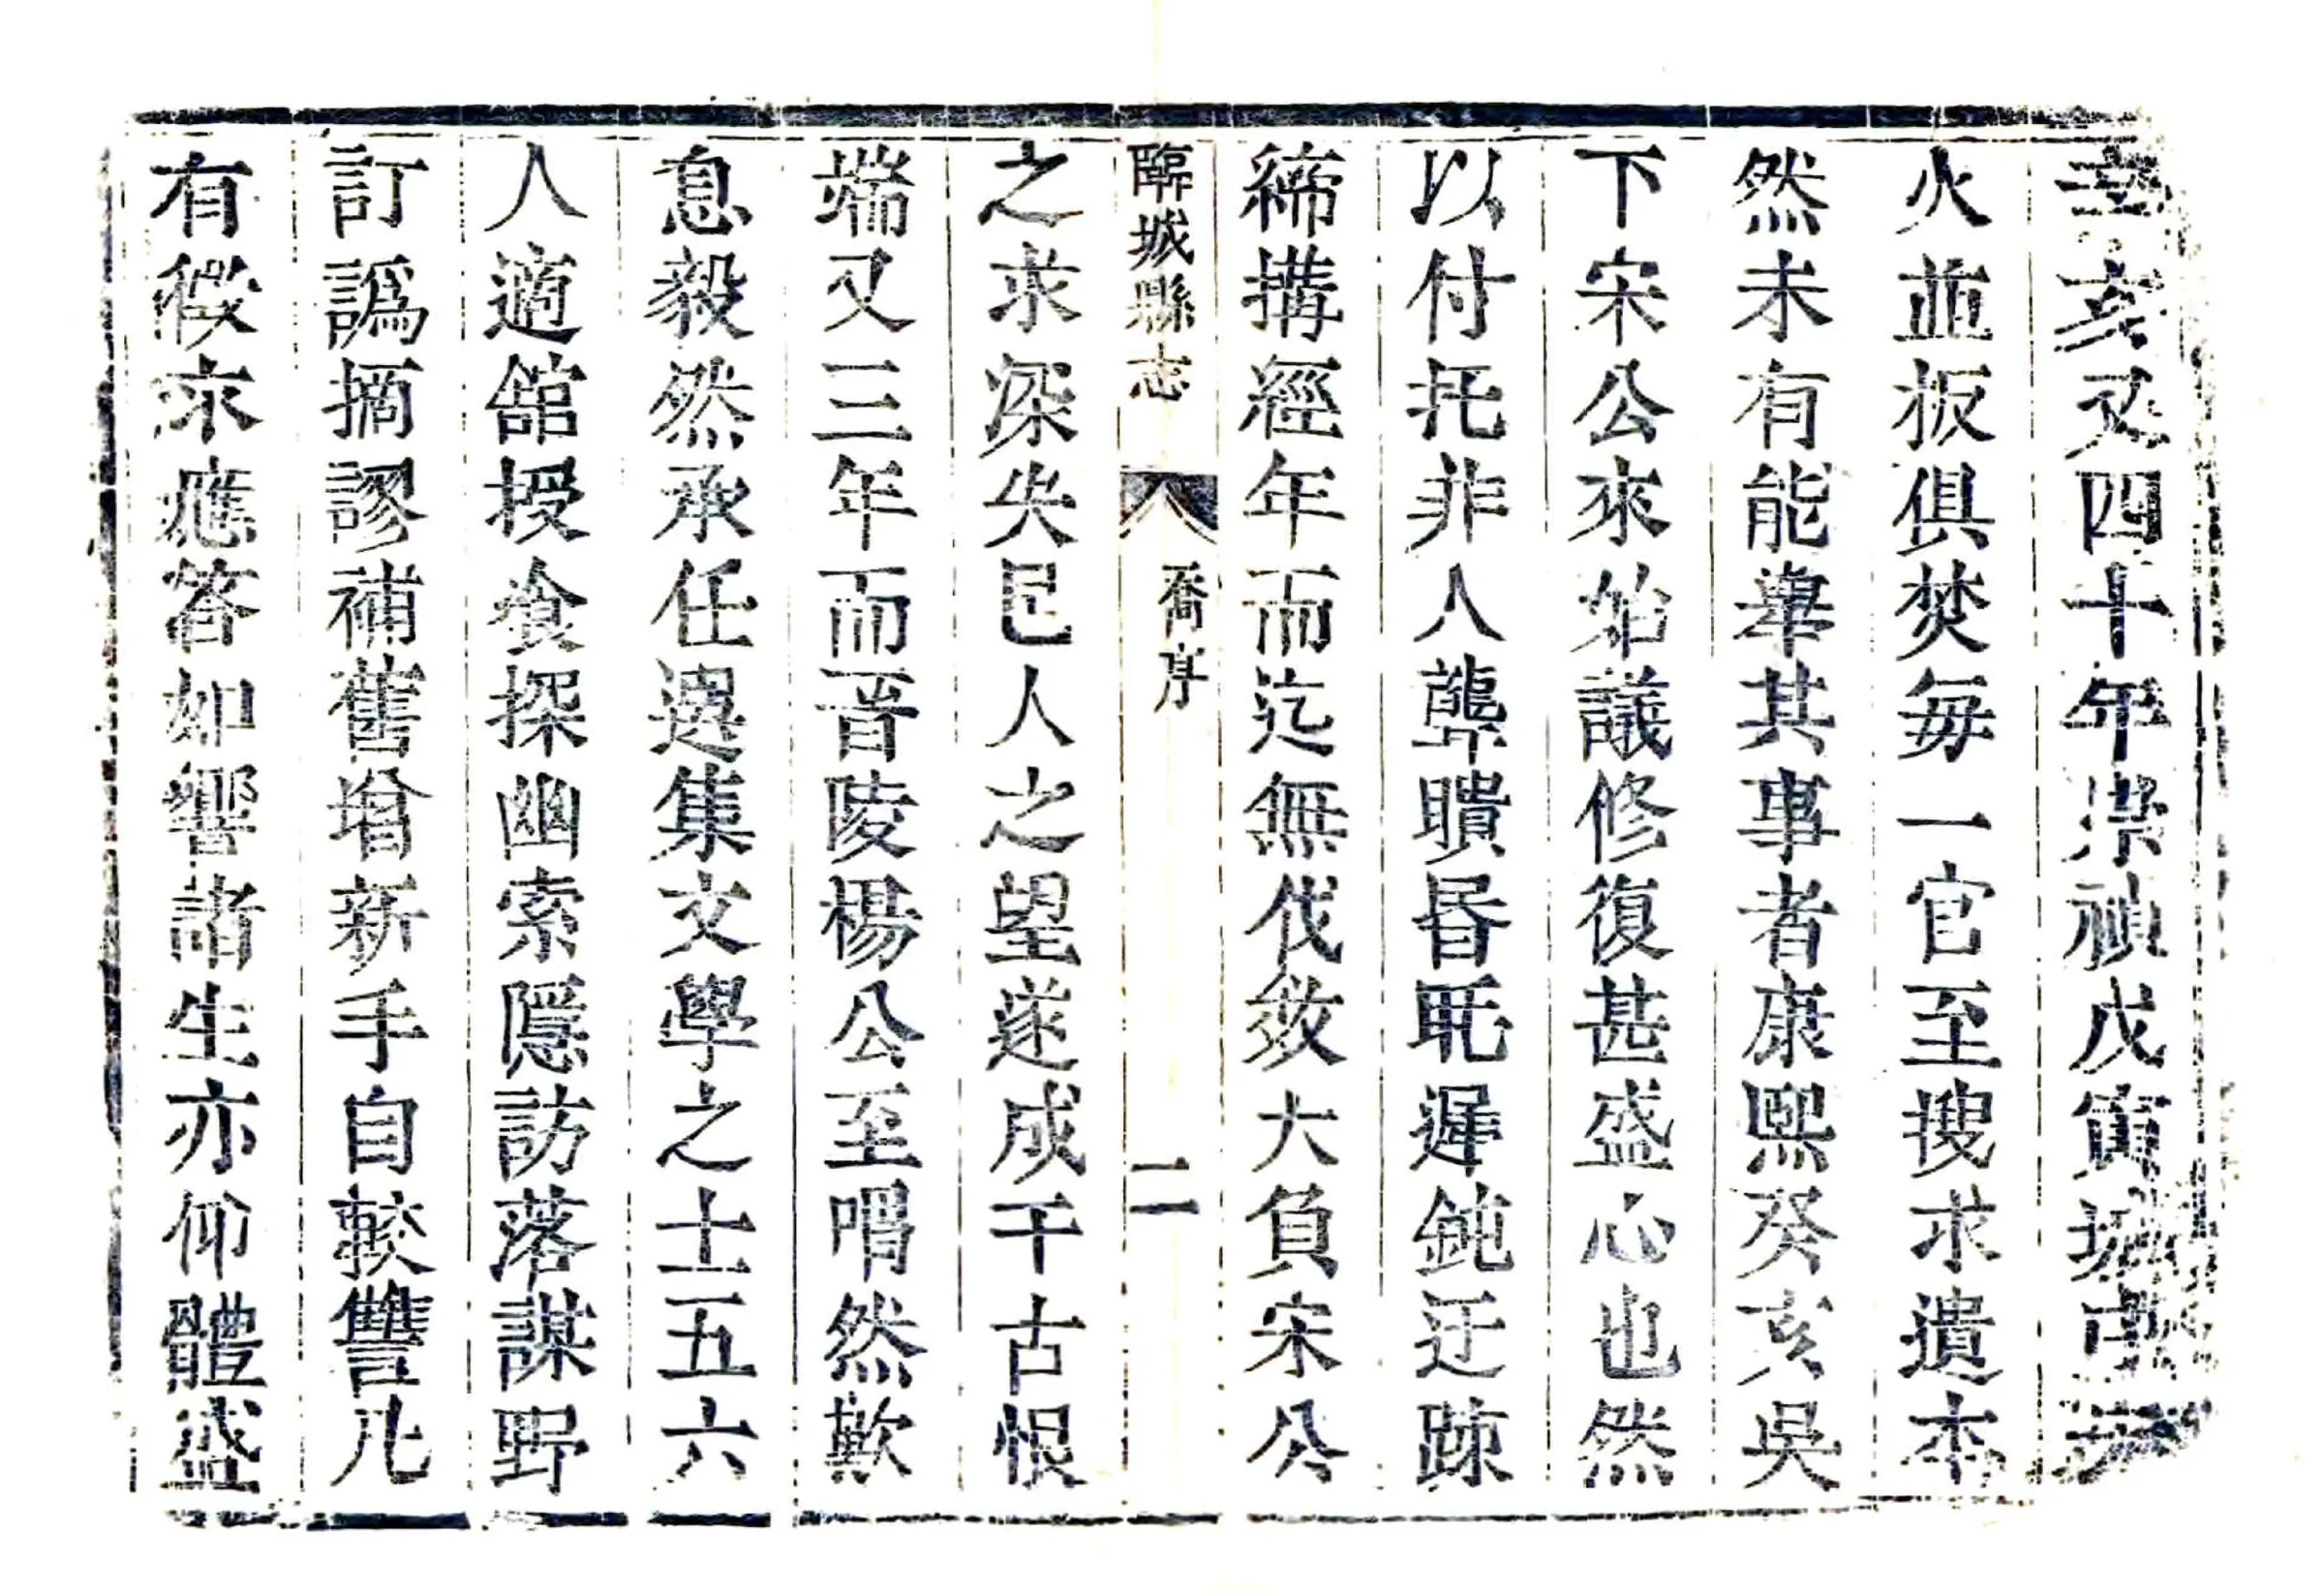 亥又四十年崇禎戊寅城
火並板俱焚每一官至搜求遺本
然未有能舉其事者康熙癸亥吳
下宋公來始議修復甚盛心也然
以付托非人聾瞶昬眊遲鈍迂踈
締搆經年而迄無伐效大負宋公
臨城縣志
喬序
二
之求深失邑人之望遂成千古恨
端又三年而晉陵楊公至喟然歎
息毅然承任選集文學之士五六
人適舘授飡探幽索隱訪落謀野
訂譌摘謬補舊增新手自較讐凡
有徵求應答如響諸生亦仰體盛